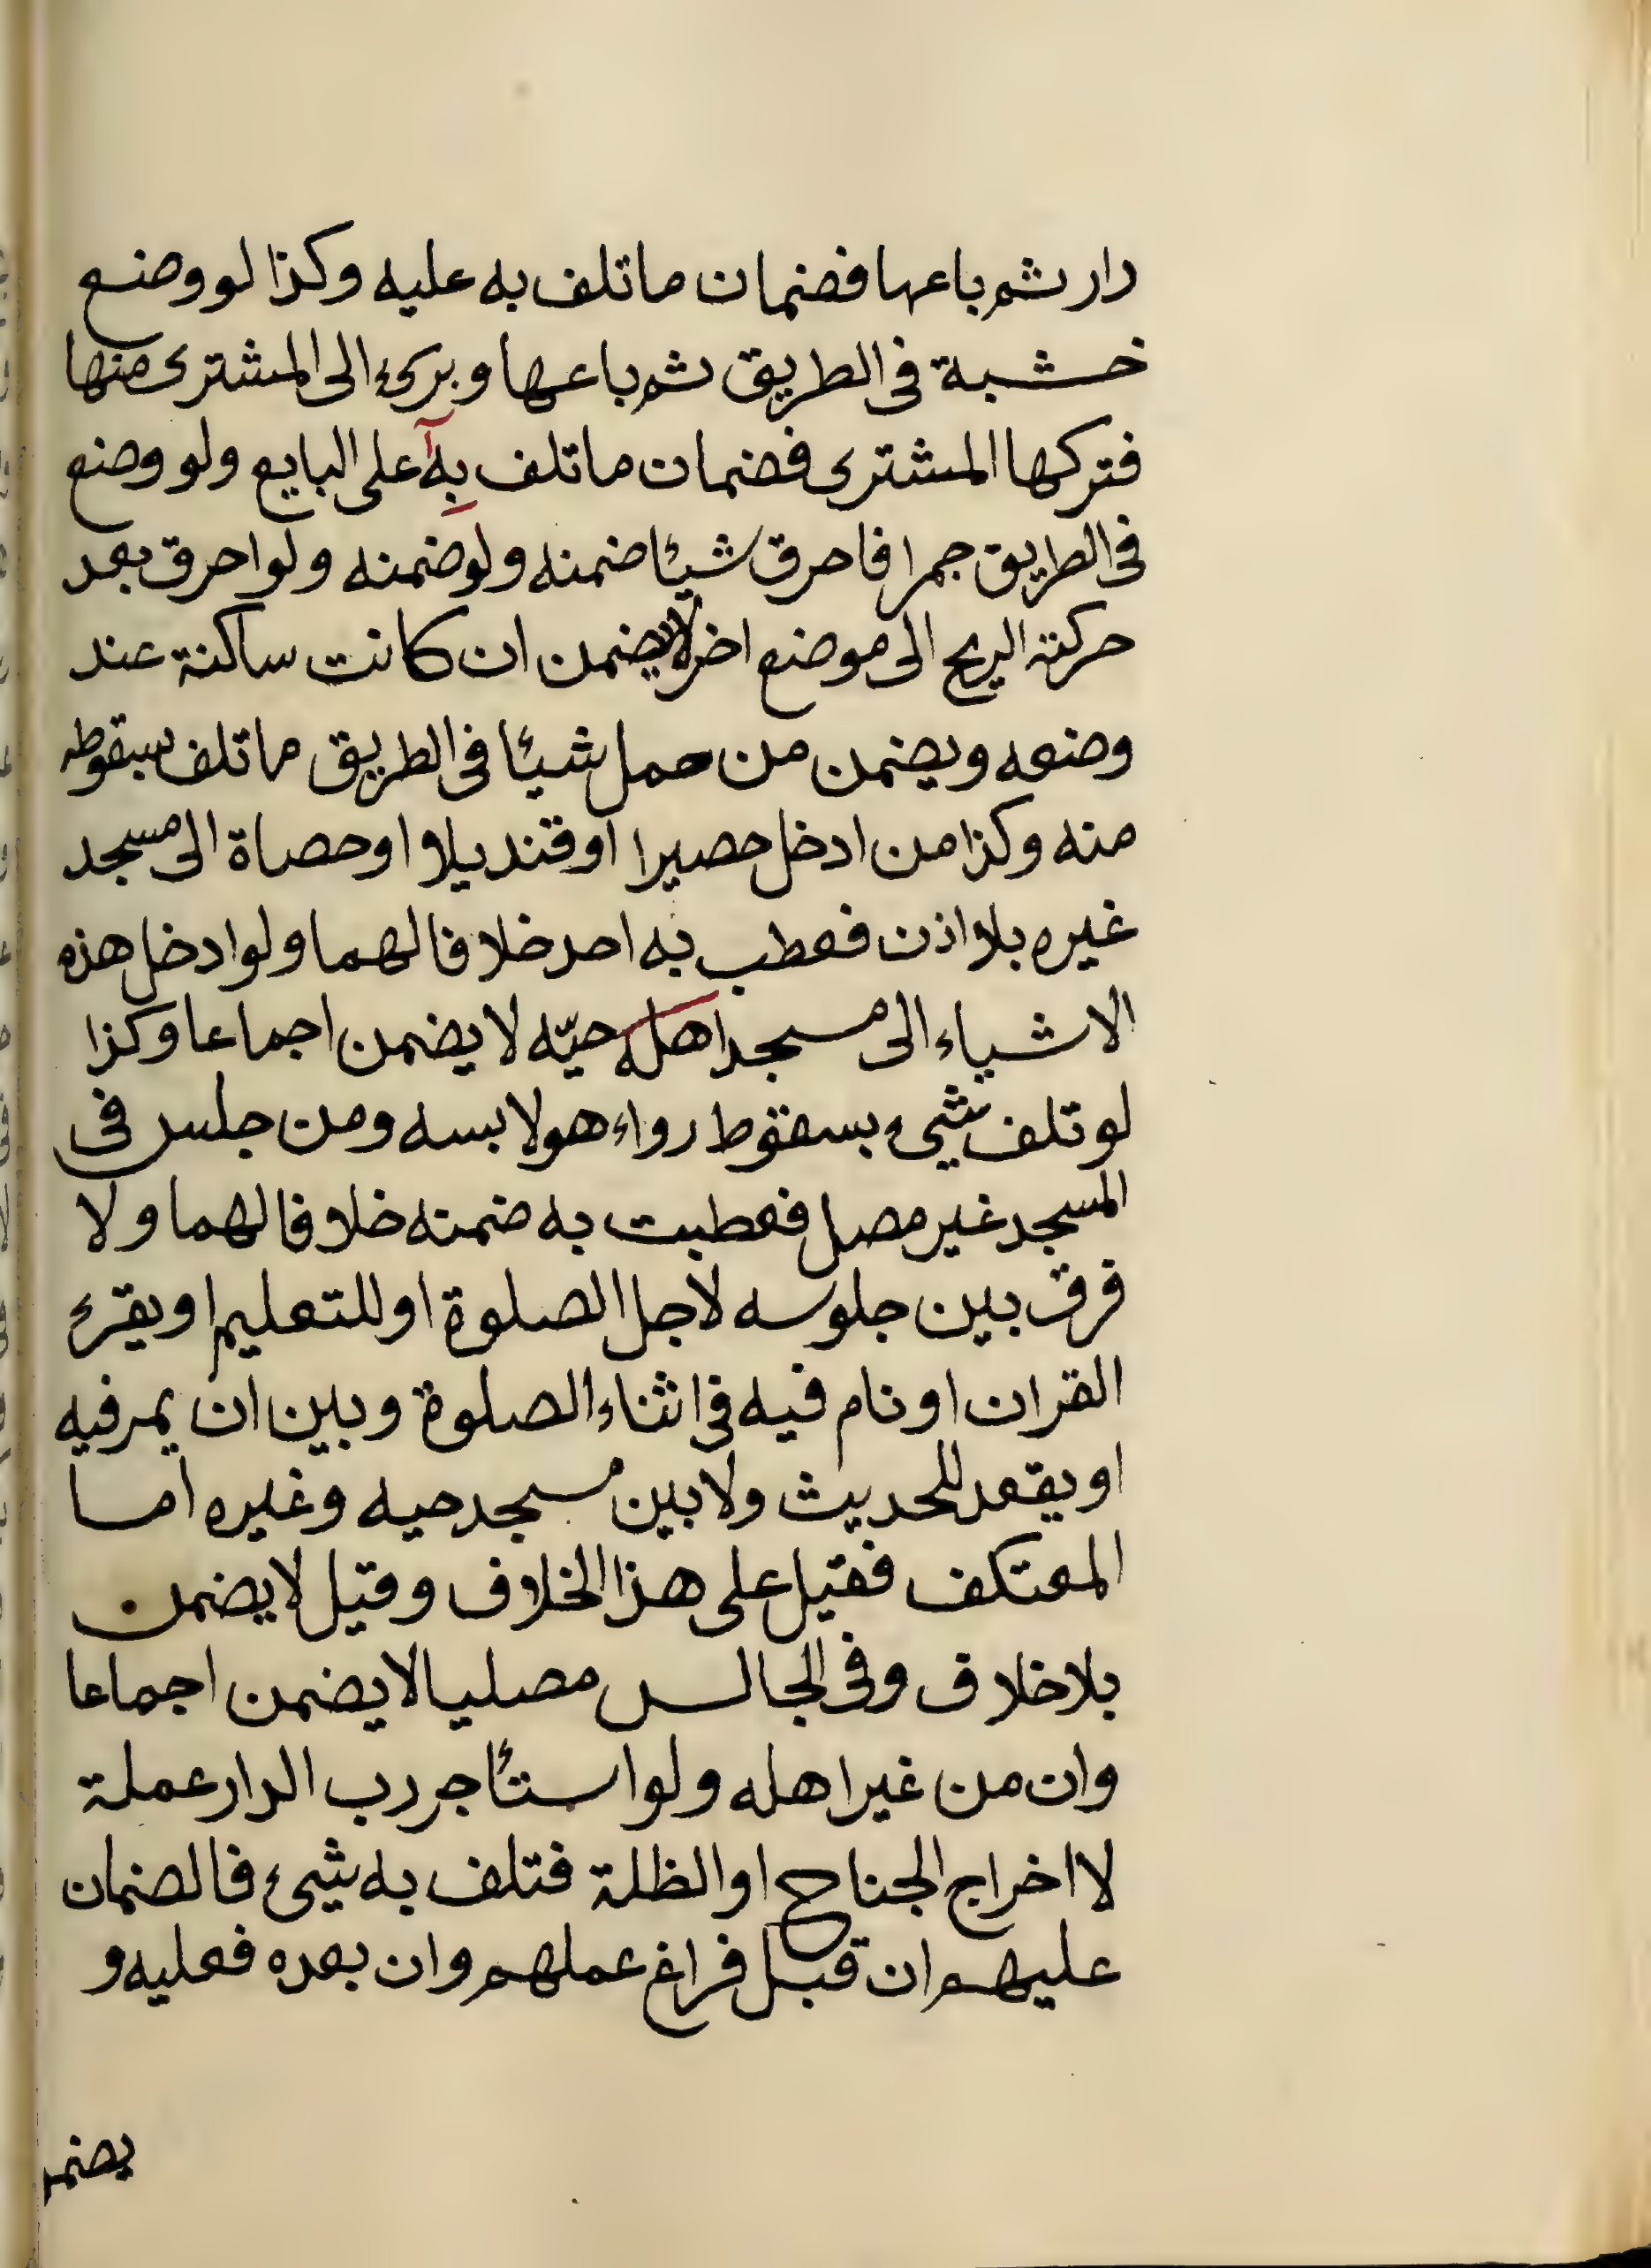 دار ثم باعها فضمان ما تلف به عليه وكذا لو وضع
خشبة فى الطريق ثم باعها وبرىء الى المشترى منها
فتركها المشترى فضمان ما تلف به على البايع ولو وضع
فى الطريق جمرا فاحرق شيئا ضمنه ولو ضمنه ولو احرق بعد
حركته الريح الى موضع اخر لا يضمن ان كانت ساكنة عند
وضعه ويضمن من حمل شيئا فى الطريق ما تلف بسقوطه
منه وكذا من ادخل حصيرا او قنديلا او حصاة الى مسجد
غيره بلا اذن فعطب به احد خلافا لهما ولو ادخل هذه
الاشياء الى مسجد اهله حيّه لا يضمن اجماعا وكذا
لو تلف شىء بسقوط رداء هو لابسه ومن جلس فى
المسجد غير مصل فعطبت به ضمنه خلافا لهما ولا
فرق بين جلوسه لاجل الصلوة او للتعليم او يقرء
القران او نام فيه فى اثناء الصلوة وبين ان يمر فيه
او يقعد للحديث ولا بين مسجد حيه وغيره اما
المعتكف فقيل على هذا الخلاف وقيل لا يضمن
بلا خلاف وفى الجالس مصليا لا يضمن اجماعا
وان من غير اهله ولو استئاجر رب الدار عملة
لا اخراج الجناح او الظلة فتلف به شىء فالضمان
عليهم ان قبل فراغ عملهم وان بعده فعليه و
يضمن